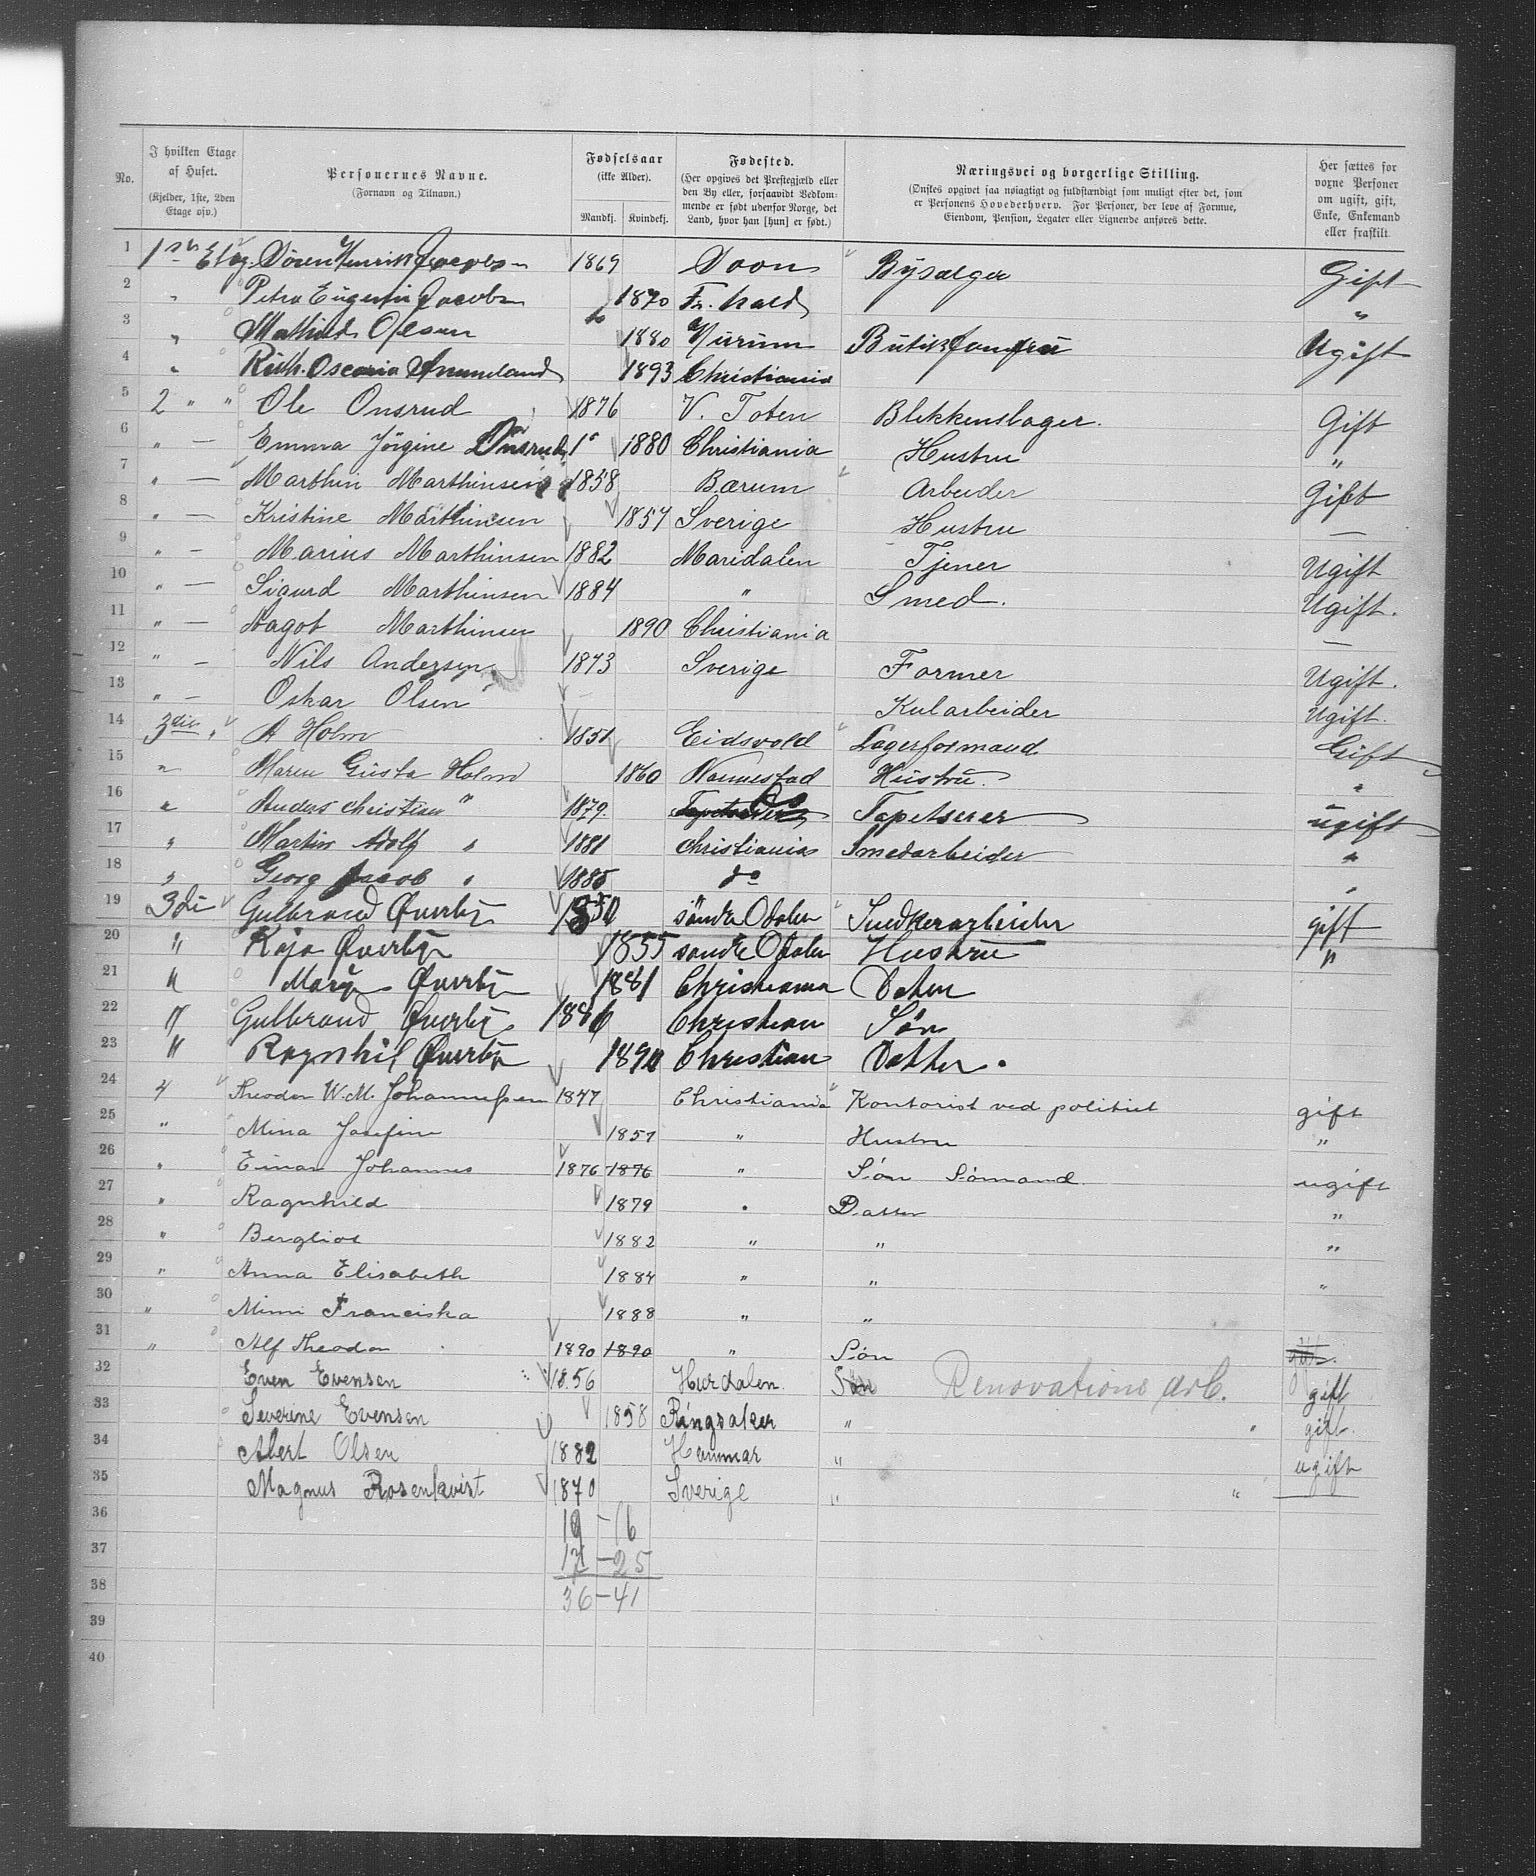 No. | I hvilken Etage af Huset. (Kjelder, 1ste, 2den Etage osv.) | Personernes Navne. (Fornavn og Tilnavn.) | Fødselsaar (ikke Alder). Mandkj. Kvindekj. | Fødested. (Her opgives det Prestegjæld eller den By eller, forsaavidt Vedkommende er født udenfor Norge, det Land, hvor han [hun] er født.) | Næringsvei og borgerlige Stilling. (Ønskes opgivet saa nøiagtigt og fuldstændigt som muligt efter det, som er Personens Hovederhverv. For Personer, der leve af Formue, Eiendom, Pension, Legater eller Lignende anføres dette. | Her sættes for voxne Personer om ugift, gift, Enke, Enkemand eller fraskilt.
1 1ste Etag. Sören Henrik Jacobs 1869 Byselger Gift
2 " Petra Eugenie Jacobs 1870 Fr.hald "
3 " Mathilde Olsen 1880 Butikjomfru Ugift
4 " Ruth Oscaria 1893 Christiania
5 2 " " Ole Onsrud 1876 V. Toten Blikkenslager. Gift
6 " — Emma Jörgine Onsrud 1880 Christiania Hustru "
7 " — Marthin Marthinsen 1858 Bærum Arbeider Gift
8 " — Kristine Marthinsen 1857 Sverige Hustru —
9 " — Marius Marthinsen 1882 Maridalen Tjener Ugift
10 " — Sigurd Marthinsen 1884 " Smed. Ugift.
11 " — Aagot Marthinsen 1890 Christiania —
12 " — Nils Andersen 1873 Sverige Former Ugift.
13 " — Oskar Olsen — Kularbeider Ugift.
14 3die " A Holm 1851 Eidsvold Lagerformand Gift
15 " Maren Gusta Holm 1860 Nannestad Hustru. "
16 " Anders Christian " 1879. Do Tapetserer ugift
17 " Martin Adolf " 1881 Christiania Smedarbeider "
18 " Georg Jacob " 1885 do "
19 3die Gulbrand Øverby 1850 söndre Odalen Snedkerarbeider gift
20 " Kaja Øverby 1855 söndre Odalen Hustru "
21 " Mary Øverby 1881 Christiania Dater
22 " Gulbrand Øverby 1886 Christian Søn
23 " Ragnhil Øverby 1890 Christian Datter.
24 4 Theodor W. M. Johannessen 1847 Christiania Kontorist ved politiet gift
25 " Mina Josefine 1857 " Hustru "
26 " Einar Johannes 1876 1876 " Søn Sömand. ugift
27 " Ragnhild 1879 " Datter "
28 " Bergliot 1882 " " "
29 " Anna Elisabeth 1884 " " "
30 " Mimi Franciska 1888 " "
31 " Alf Theodor 1890 1890 " Søn
32 Even Evensen 1856 Hurdalen. Søn Renovations arb. gift
33 Severine Evensen 1858 Ringsaker " " gift.
34 Albert Olsen 1882 Hammar " ugift
35 Magnus Rosenkvist 1870 Sverige " "
36 19 - 16
37 17 - 25
38 36 - 41
39
40